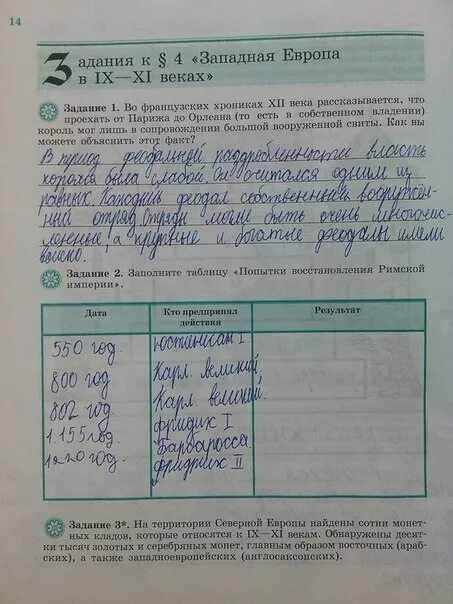 14
Задания к § 4 «Западная Европа
в IX—XI веках»
Задание 1. Во французских хрониках XII века рассказывается, что
проехать от Парижа до Орлеана (то есть в собственном владении)
король мог лишь в сопровождении большой вооруженной свиты. Как вы
можете объяснить этот факт?
В период феодальной раздробленности власть
короля была слабой. Он считался одним из
равных. Каждый феодал собственный вооружён-
ный отряд. Отряды могли быть очень многочис-
ленные, а крупные и богатые феодалы имели
войско.
Задание 2. Заполните таблицу «Попытки восстановления Римской
империи».
Дата Кто предпринял действия Результат
550 год. Юстиниан I
800 год Карл великий.
802 год. Карл великий.
1.155 год. Фридих I
Барбаросса
1220 год. Фридрих II
Задание 3*. На территории Северной Европы найдены сотни монет-
ных кладов, которые относятся к IX—XI векам. Обнаружены десят-
ки тысяч золотых и серебряных монет, главным образом восточных (араб-
ских), а также западноевропейских (англосаксонских).